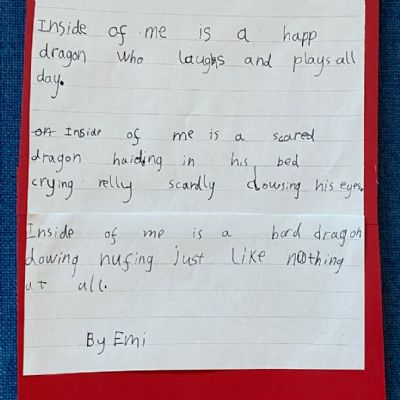 Inside of me is a happ
dragon who laughs and plays all
day.
on Inside of me is a scared
dragon haiding in his bed
crying relly scardly dowsing his eyes.
Inside of me is a bord dragon
dowing nufing just like nothing
at all.
By Emi